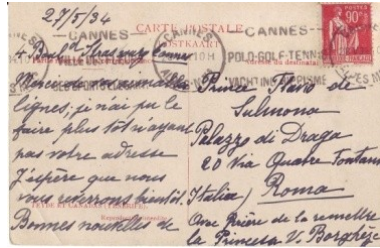 27/5/34
CARTE POSTALE
POSTKAART
CANNES
CANNES
POLO-GOLF-TENNIS
YACHTING-ALPINISME
POSTES
90c
4 Boul.d Strasbourg Cannes
Merci de vos aimables
lignes, je n'ai pu le
faire plus tôt n'ayant
pas votre adresse
J'espère que nous
vous reverrons bientôt.
Bonnes nouvelles de
Prince Flavio de
Sulmona
Palazzo di Drago
20 Via Quatre Fontane
Italia) Roma
Avec Prière de la remettre
à la Princesse V. Borghèse